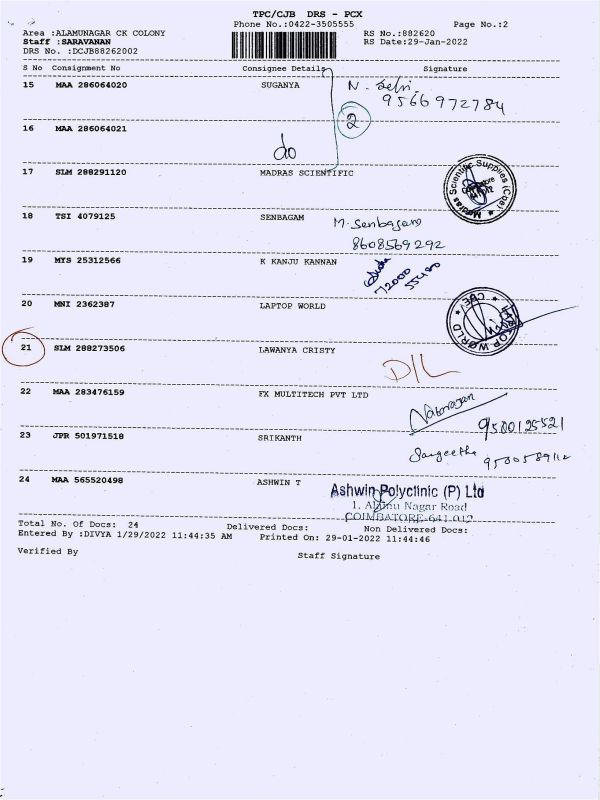 TPC/CJB DRS - PCX
Phone No.:0422-3505555 Page No.:2
Area :ALAMUNAGAR CK COLONY RS No.:882620
Staff :SARAVANAN RS Date:29-Jan-2022
DRS No. :DCJB88262002
S No Consignment No Consignee Details Signature
15 MAA 286064020 SUGANYA N. Selvi
9566972784
2
16 MAA 286064021
do
17 SLM 288291120 MADRAS SCIENTIFIC
Madras Scientific Supplies (Cbe)
18 TSI 4079125 SENBAGAM M. Senbagam
8608569292
19 MYS 25312566 K KANJU KANNAN
72000
20 MNI 2362387 LAPTOP WORLD
LAPTOP WORLD CBE
21 SLM 288273506 LAWANYA CRISTY
D/L
22 MAA 283476159 FX MULTITECH PVT LTD
Natarajan 9500125521
23 JPR 501971518 SRIKANTH
Sangeetha
24 MAA 565520498 ASHWIN T
Ashwin Polyclinic (P) Ltd
1, Alamu Nagar Road
COIMBATORE-641 012
Total No. Of Docs: 24 Delivered Docs: Non Delivered Docs:
Entered By :DIVYA 1/29/2022 11:44:35 AM Printed On: 29-01-2022 11:44:46
Verified By Staff Signature